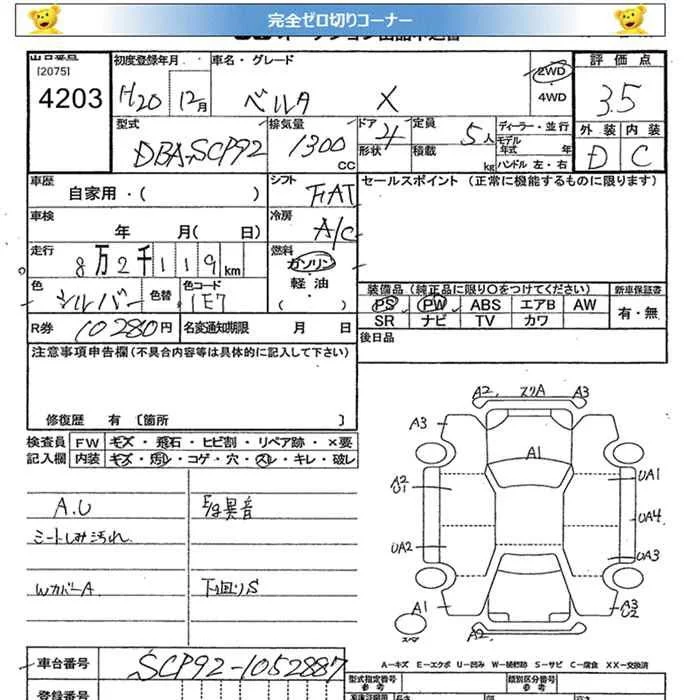 完全ゼロ切りコーナー
[2075]
初度登録年月 車名・グレード 評価点
4203 H20 12月 ベルタ X 2WD 4WD 3.5
型式 排気量 ドア 形状 定員 積載 ディーラー・並行 外装 内装
DBA-SCP92 1300 CC 4 5人 kg モデル年式 年 D C
ハンドル 左・右
車歴 シフト セールスポイント (正常に機能するものに限ります)
自家用・( ) FAT
車検 冷房
年 月( 日) A/C
走行 燃料
8万2千119km ガソリン
軽油
( )
色 色替 色コード 装備品 (純正品に限り○をつけてください) 新車保証書
シルバー 1E7 PS PW ABS エアB AW 有・無
SR ナビ TV カワ
R券 10280円 名変通知期限 月 日 後日品
注意事項申告欄(不具合内容等は具体的に記入して下さい)
修復歴 有 [箇所 ]
検査員 FW キズ・飛石・ヒビ割・リペア跡・×要
記入欄 内装 キズ・汚れ・コゲ・穴・スレ・キレ・破レ
A.U E/g異音
シートしみ汚れ
WカバーA 下回りS
A2 スリA A3
A3
A1
A2 U1
UA1
UA4
UA2
UA3
A1
A3 U2
スペア
A2
A―キズ E―エクボ U―凹み W―補修跡 S―サビ C―腐食 XX―交換済
車台番号 SCP92-1052887
型式指定番号 参考 類別区分番号 参考
登録番号